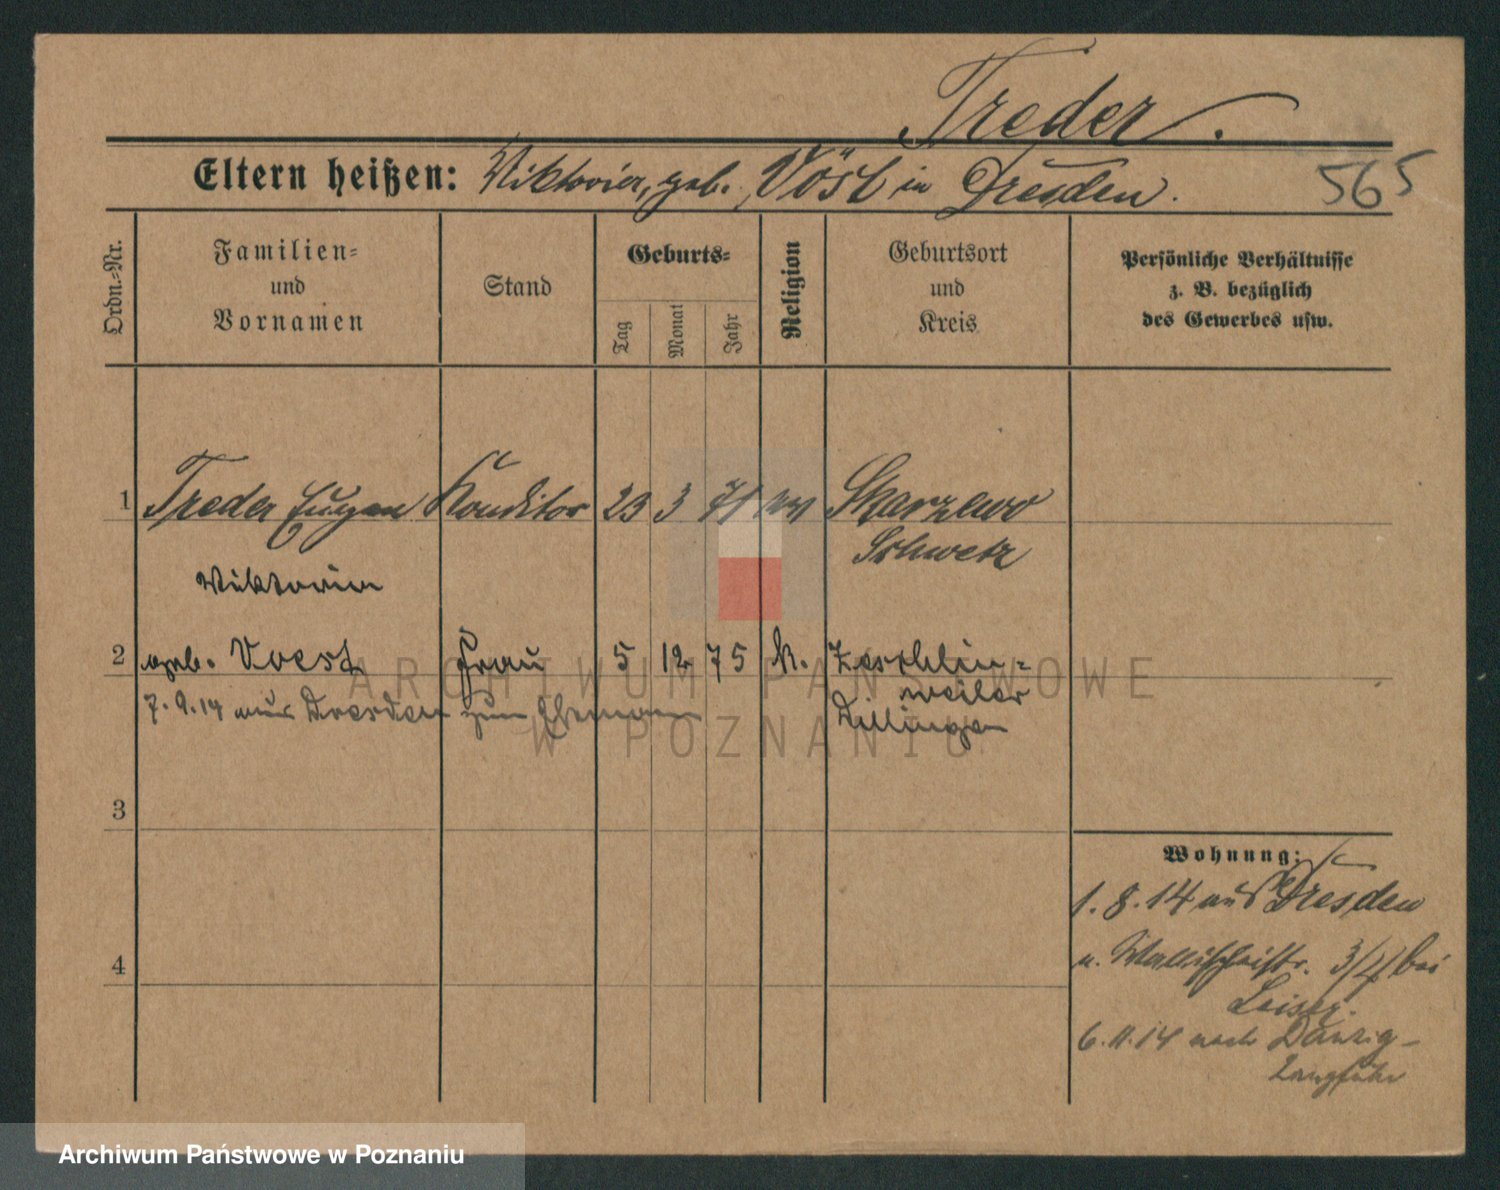 Treder.
Eltern heißen: Viktoria, geb. Vösl in Dresden.
565
Ordn.=Nr.
Familien=
und
Vornamen
Stand
Geburts=
Tag
Monat
Jahr
Religion
Geburtsort
und
Kreis
Persönliche Verhältnisse
z. B. bezüglich
des Gewerbes usw.
1 Treder Eugen Konditor 23 3 71 Skarzewo
Schwetz
Viktoria
2 geb. Voest Frau 5 12 75 k. Zeschlin=
weiler
7.9.14 aus Dresden zum Ehemann
Dillingen
3
4
Wohnung:
1.8.14 aus Dresden
n. Wallischeistr. 3/4 bei
Leiser.
6.11.14 nach Danzig-
Langfuhr
ARCHIWUM PAŃSTWOWE
W POZNANIU
Archiwum Państwowe w Poznaniu